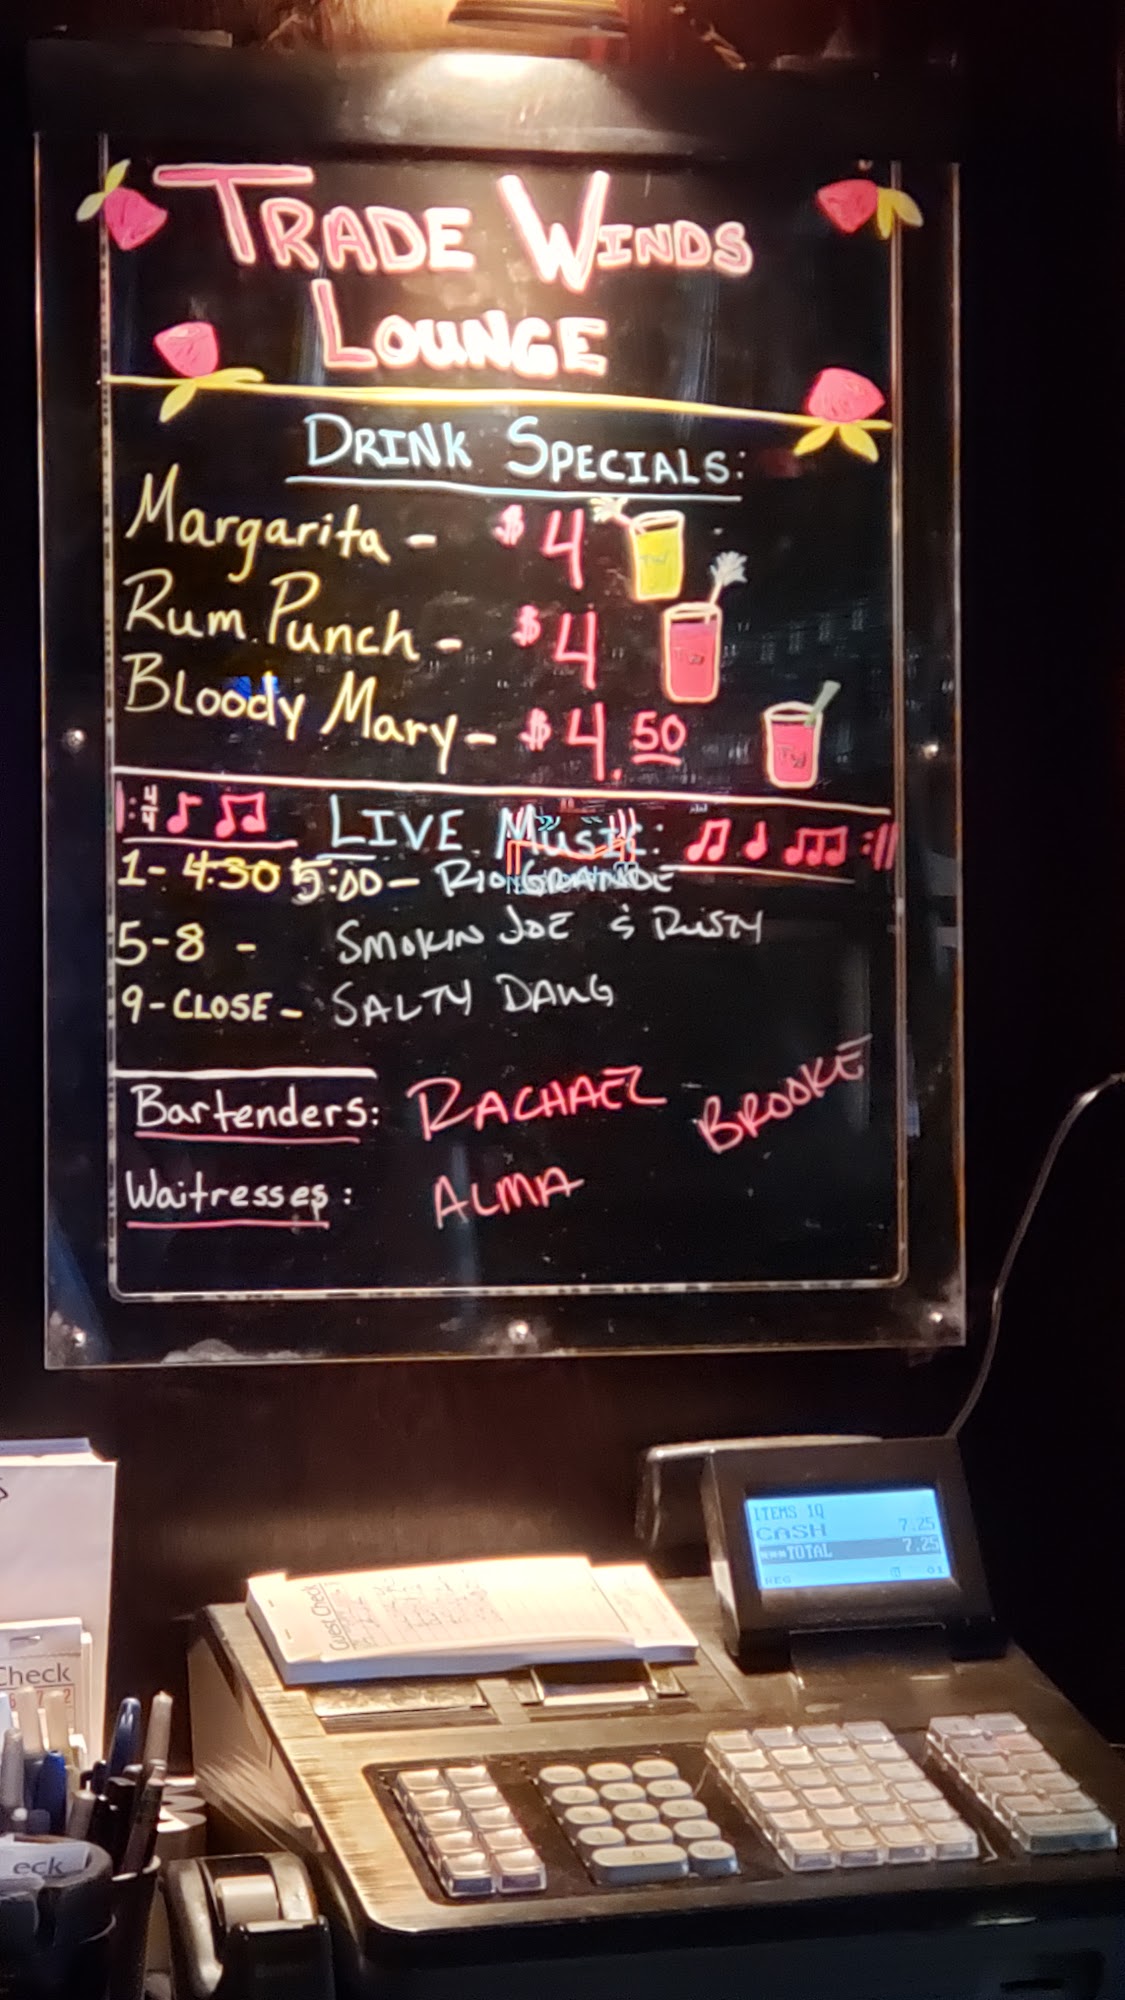 TRADE WINDS
LOUNGE
DRINK SPECIALS:
Margarita - $4
Rum Punch - $4
Bloody Mary - $4.50
LIVE MUSIC:
1- 4:30 5:00 - RIO GRANDE
5-8 - SMOKIN JOE & RUSTY
9-CLOSE - SALTY DAWG
Bartenders: RACHAEL BROOKE
Waitresses: ALMA
ITEMS 1Q
CASH 7.25
***TOTAL 7.25
REG 01
Guest Check
Check
eck